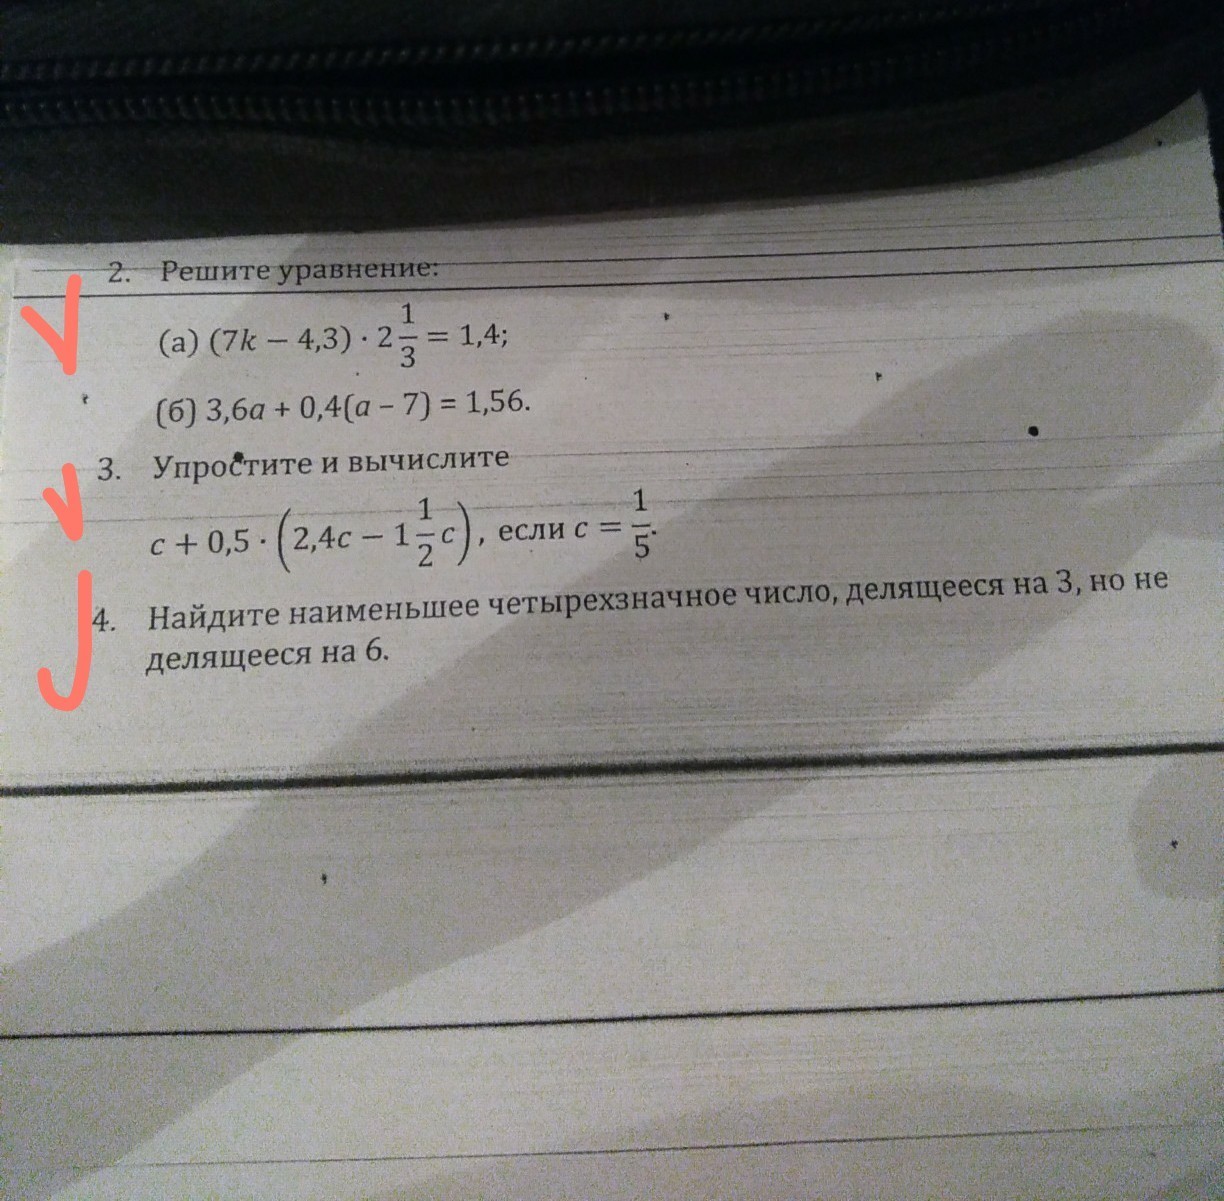 2. Решите уравнение:
(а) (7k − 4,3) · 2 1/3 = 1,4;
(б) 3,6a + 0,4(a − 7) = 1,56.
3. Упростите и вычислите
c + 0,5 · (2,4c − 1 1/2 c), если c = 1/5.
4. Найдите наименьшее четырехзначное число, делящееся на 3, но не
делящееся на 6.